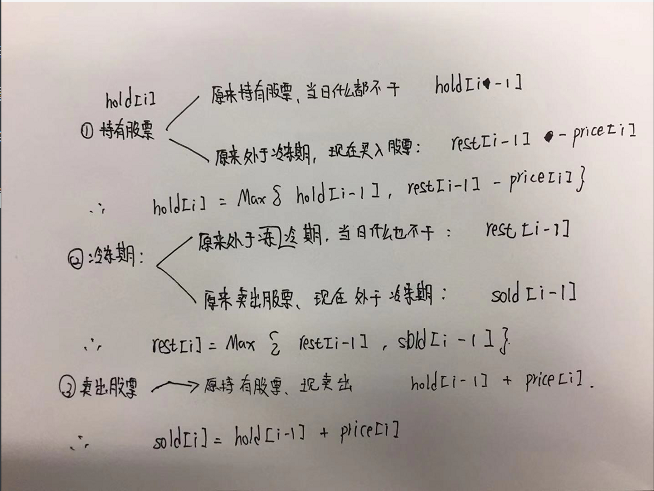 hold[i]
原来持有股票、当日什么都不干 hold[i-1]
① 持有股票
原来处于冷冻期，现在买入股票： rest[i-1] - price[i]
∴ hold[i] = Max { hold[i-1], rest[i-1] - price[i] }
原来处于冻冷期，当日什么也不干： rest[i-1]
② 冷冻期：
原来卖出股票、现在处于冷冻期： sold[i-1]
∴ rest[i] = Max { rest[i-1], sold[i-1] }
③ 卖出股票 → 原持有股票、现卖出 hold[i-1] + price[i].
∴ sold[i] = hold[i-1] + price[i]